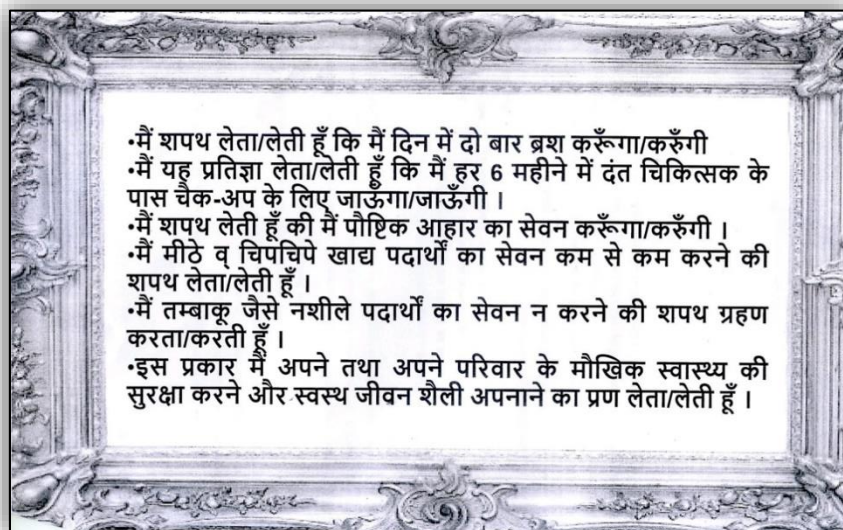 •मैं शपथ लेता/लेती हूँ कि मैं दिन में दो बार ब्रश करूँगा/करुँगी
•मैं यह प्रतिज्ञा लेता/लेती हूँ कि मैं हर 6 महीने में दंत चिकित्सक के
पास चैक-अप के लिए जाऊँगा/जाऊँगी ।
•मैं शपथ लेती हूँ की मैं पौष्टिक आहार का सेवन करूँगा/करुँगी ।
•मैं मीठे व् चिपचिपे खाद्य पदार्थों का सेवन कम से कम करने की
शपथ लेता/लेती हूँ ।
•मैं तम्बाकू जैसे नशीले पदार्थों का सेवन न करने की शपथ ग्रहण
करता/करती हूँ ।
•इस प्रकार मैं अपने तथा अपने परिवार के मौखिक स्वास्थ्य की
सुरक्षा करने और स्वस्थ जीवन शैली अपनाने का प्रण लेता/लेती हूँ ।